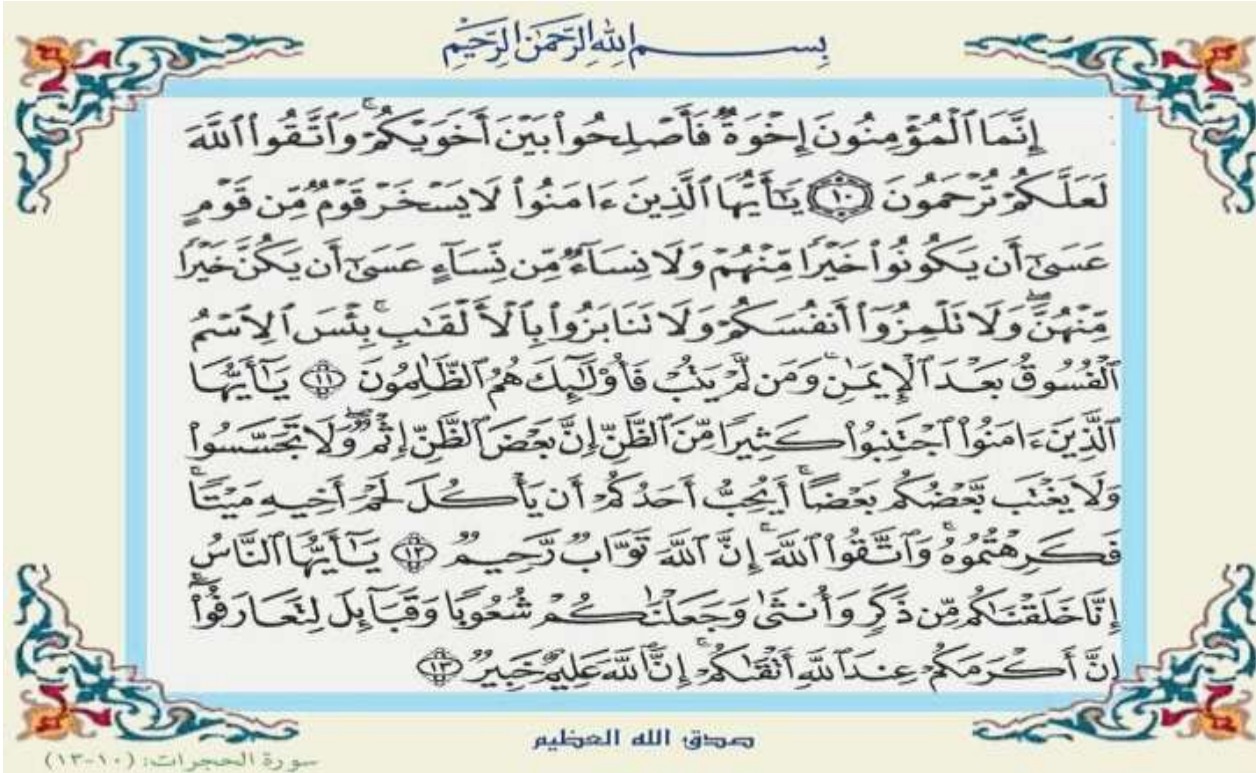 بِسْمِ اللَّهِ الرَّحْمَٰنِ الرَّحِيمِ
إِنَّمَا ٱلْمُؤْمِنُونَ إِخْوَةٌ فَأَصْلِحُوا۟ بَيْنَ أَخَوَيْكُمْ ۚ وَٱتَّقُوا۟ ٱللَّهَ
لَعَلَّكُمْ تُرْحَمُونَ ١٠ يَٰٓأَيُّهَا ٱلَّذِينَ ءَامَنُوا۟ لَا يَسْخَرْ قَوْمٌ مِّن قَوْمٍ
عَسَىٰٓ أَن يَكُونُوا۟ خَيْرًا مِّنْهُمْ وَلَا نِسَآءٌ مِّن نِّسَآءٍ عَسَىٰٓ أَن يَكُنَّ خَيْرًا
مِّنْهُنَّ ۖ وَلَا تَلْمِزُوٓا۟ أَنفُسَكُمْ وَلَا تَنَابَزُوا۟ بِٱلْأَلْقَٰبِ ۖ بِئْسَ ٱلِٱسْمُ
ٱلْفُسُوقُ بَعْدَ ٱلْإِيمَٰنِ ۚ وَمَن لَّمْ يَتُبْ فَأُو۟لَٰٓئِكَ هُمُ ٱلظَّٰلِمُونَ ١١ يَٰٓأَيُّهَا
ٱلَّذِينَ ءَامَنُوا۟ ٱجْتَنِبُوا۟ كَثِيرًا مِّنَ ٱلظَّنِّ إِنَّ بَعْضَ ٱلظَّنِّ إِثْمٌ ۖ وَلَا تَجَسَّسُوا۟
وَلَا يَغْتَب بَّعْضُكُم بَعْضًا ۚ أَيُحِبُّ أَحَدُكُمْ أَن يَأْكُلَ لَحْمَ أَخِيهِ مَيْتًا
فَكَرِهْتُمُوهُ ۚ وَٱتَّقُوا۟ ٱللَّهَ ۚ إِنَّ ٱللَّهَ تَوَّابٌ رَّحِيمٌ ١٢ يَٰٓأَيُّهَا ٱلنَّاسُ
إِنَّا خَلَقْنَٰكُم مِّن ذَكَرٍ وَأُنثَىٰ وَجَعَلْنَٰكُمْ شُعُوبًا وَقَبَآئِلَ لِتَعَارَفُوٓا۟ ۚ
إِنَّ أَكْرَمَكُمْ عِندَ ٱللَّهِ أَتْقَىٰكُمْ ۚ إِنَّ ٱللَّهَ عَلِيمٌ خَبِيرٌ ١٣
صدق الله العظيم
سورة الحجرات: (١٠-١٣)